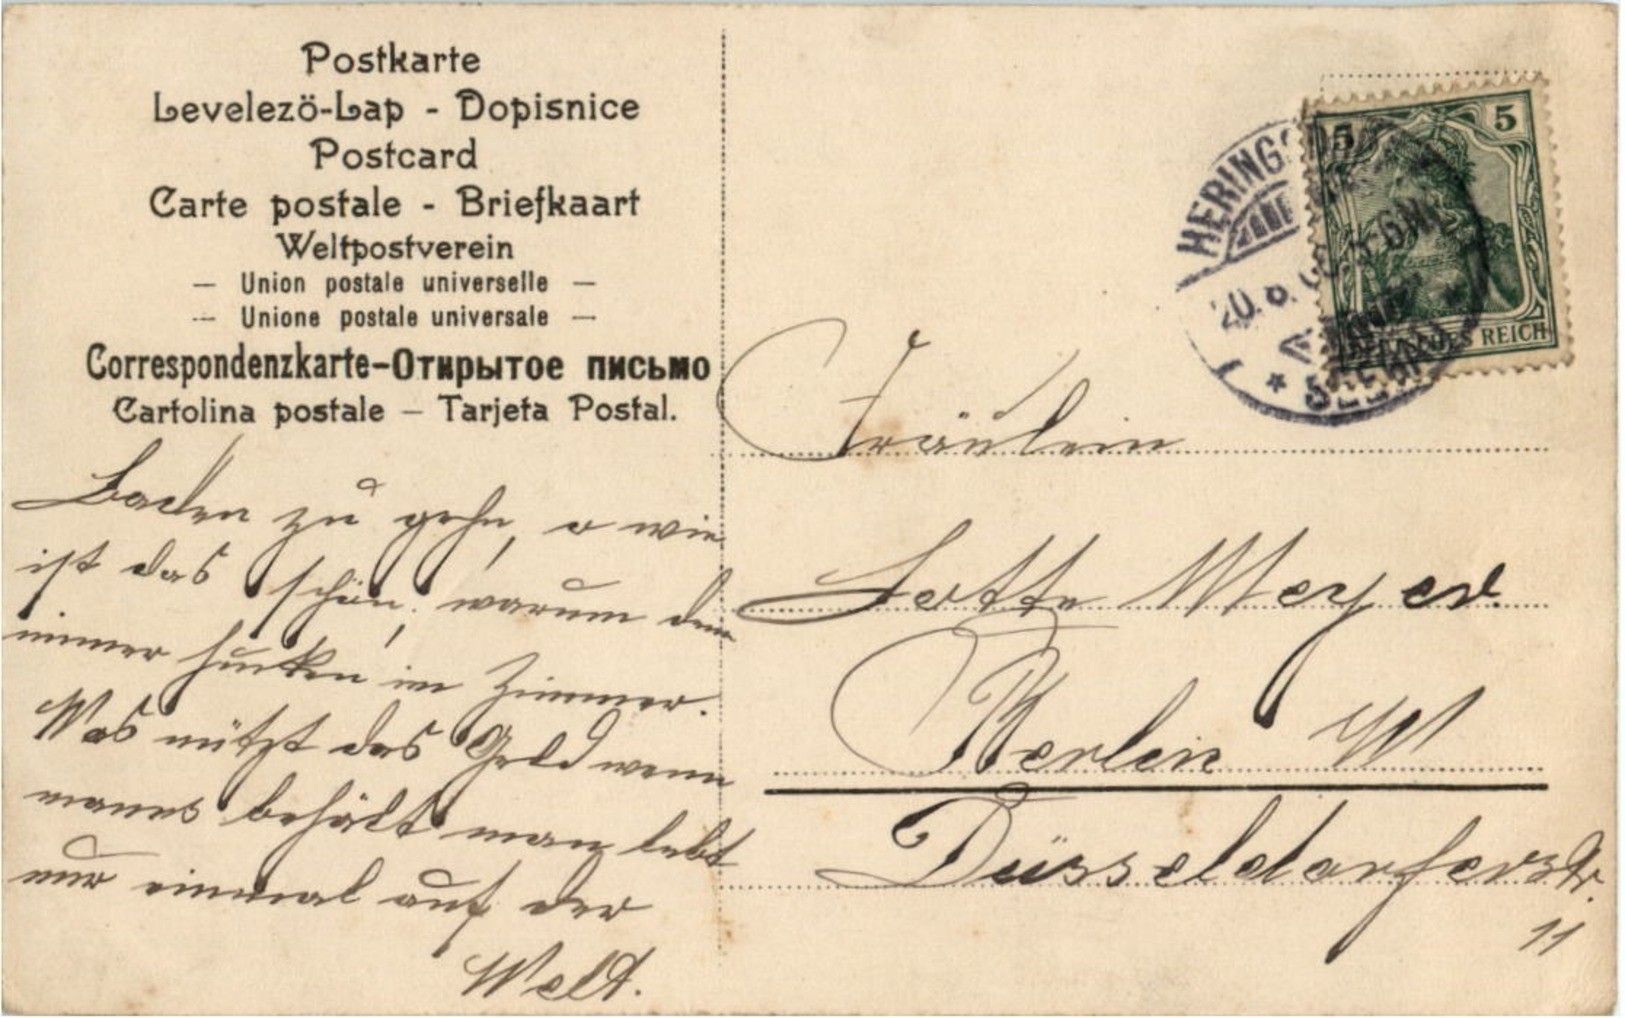 Postkarte
Levelező-Lap - Dopisnice
Postcard
Carte postale - Briefkaart
Weltpostverein
— Union postale universelle —
— Unione postale universale —
Correspondenzkarte-Открытое письмо
Cartolina postale – Tarjeta Postal.
Baden zu gehn, o wie
ist das schön, warum den
immer hucken im Zimmer.
Was nützt das Geld wenn
manns behält man lebt
nur einmal auf der
Welt.
5 5
REICH
HERINGS
20. 8.
SEEBAD
Fräulein
Lotte Meyer
Berlin W
Düsseldorferstr.
11